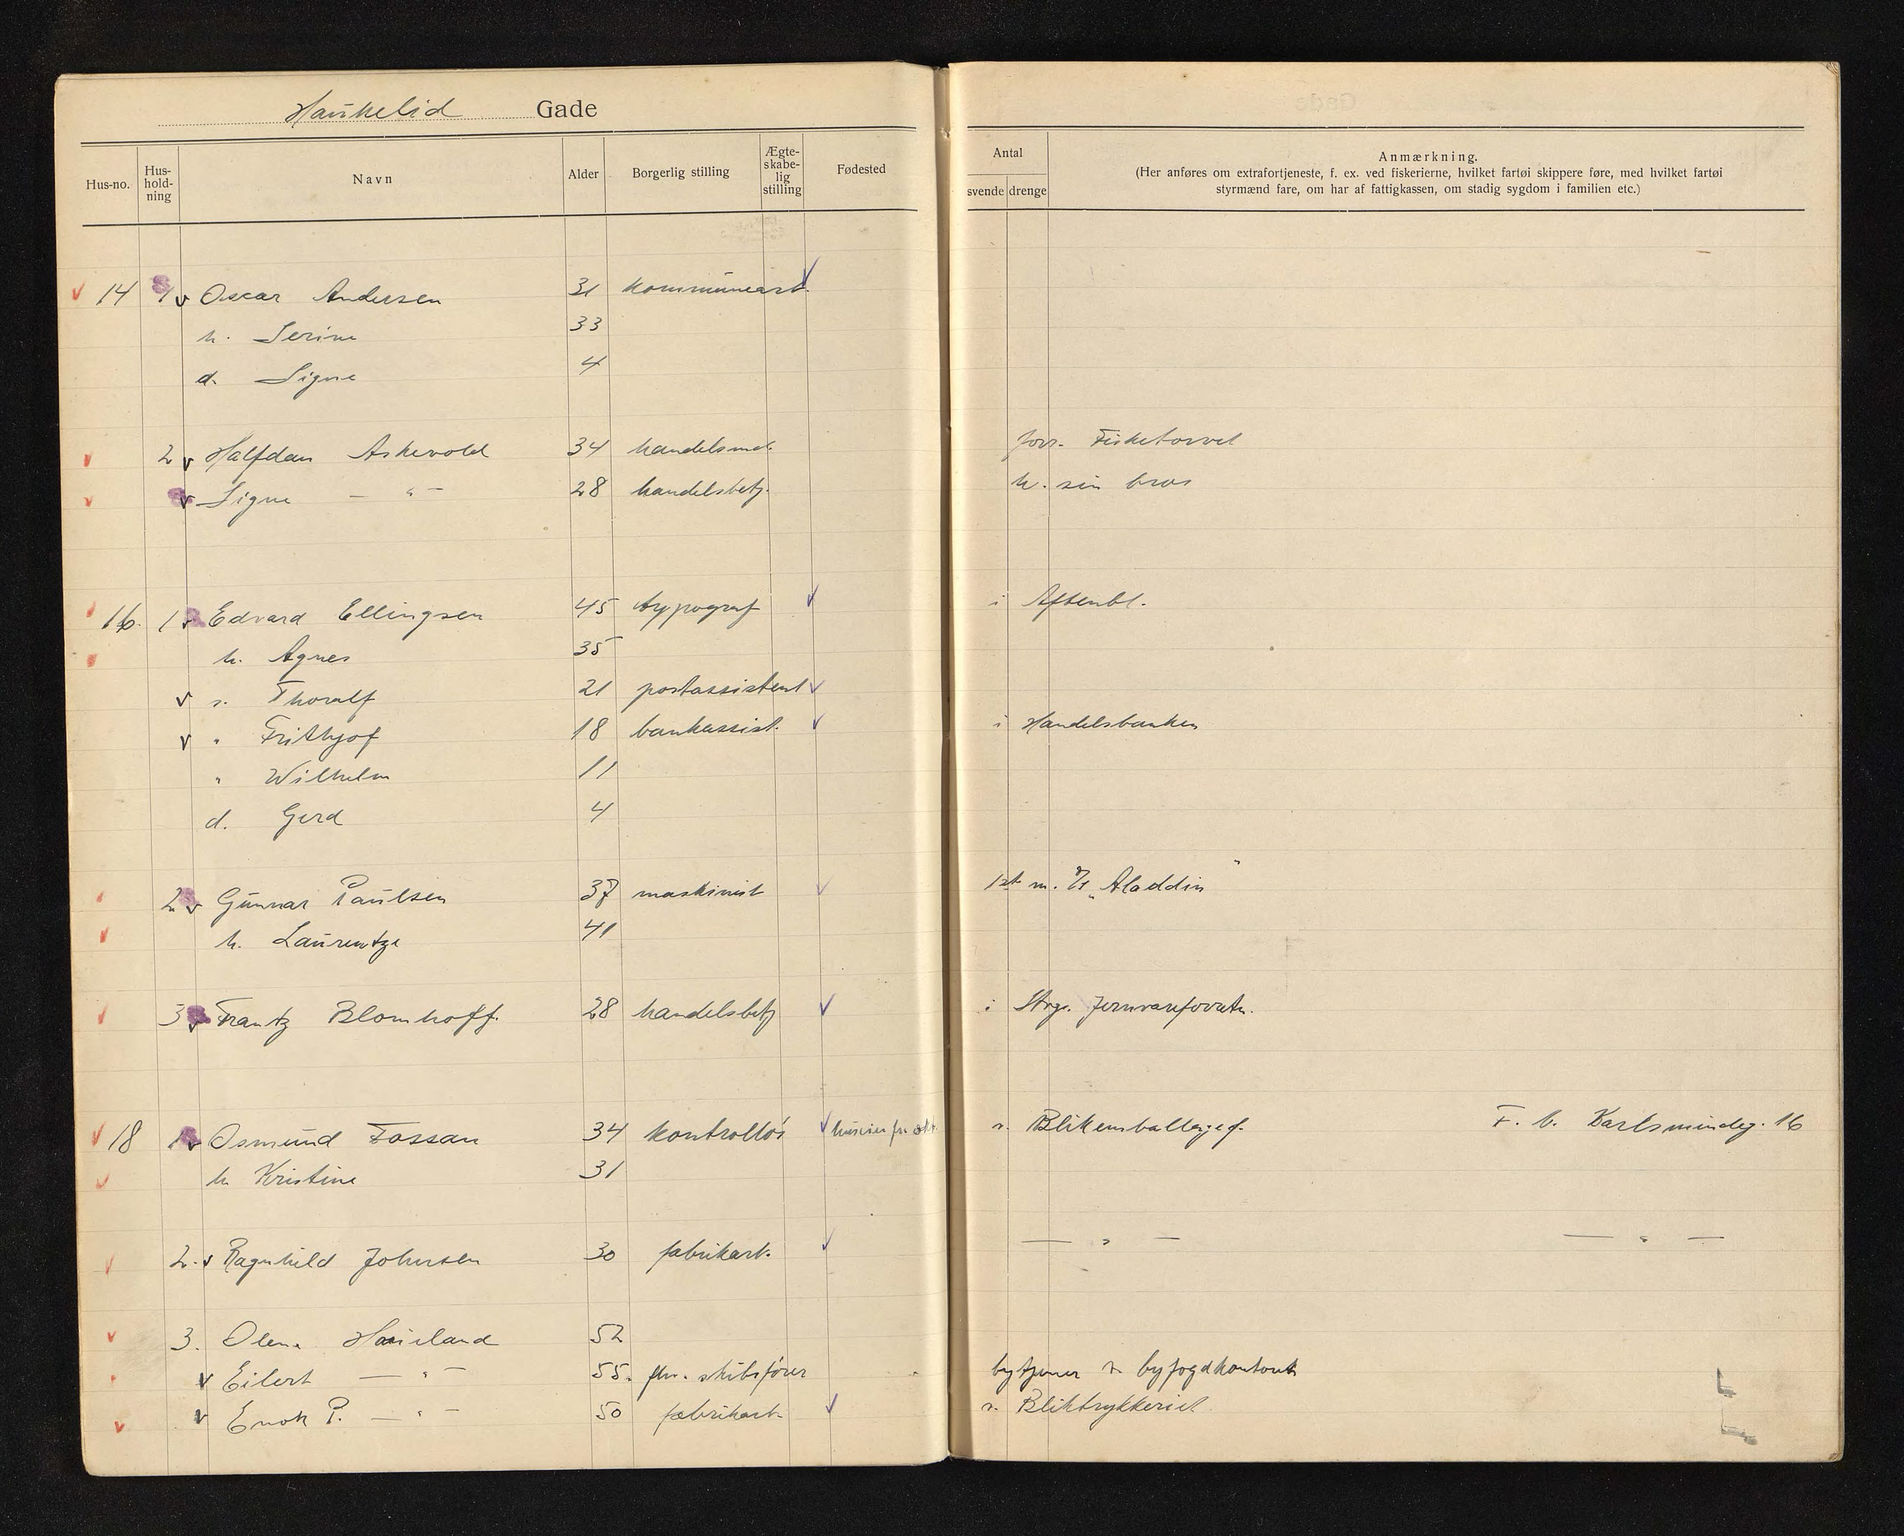 Haukelid Gade
Hus-no. Hus-hold-ning Navn Alder Borgerlig stilling Ægte-skabe-lig stilling Fødested
Antal
svende drenge
Anmærkning.
(Her anføres om extrafortjeneste, f. ex. ved fiskerierne, hvilket fartøi skippere føre, med hvilket fartøi
styrmænd fare, om har af fattigkassen, om stadig sygdom i familien etc.)
14 1 Oscar Andersen 31 kommunearb.
h. Serine 33
d. Signe 4
2 Halfdan Askevold 34 handelsmd. forr. Fisketorvet
Signe — " — 28 handelsbetj. h. sin bror
16. 1 Edvard Ellingsen 45 typograf i Aftenbl.
h. Agnes 35
s. Thoralf 21 postassistent
" Frithjof 18 bankassist. i Handelsbanken
" Wilhelm 11
d. Gerd 4
2 Gunnar Paulsen 37 maskinist 1st m. "Aladdin"
h. Laurentze 41
3 Frantz Blomhoff. 28 handelsbetj i Stvgr. Jernvareforretn.
18 1 Osmund Fossan 34 kontrollør v. Blikemballagef. F. b. Karlsmindeg. 16
h Kristine 31
2. Ragnhild Johnsen 30 fabrikarb. — " — — " —
3. Olena Haueland 52
Eilert — " — 55. fhv. skibsfører bytjener v. byfogdkontoret
Enok P. — " — 50 fabrikarb. v. Bliktrykkeriet